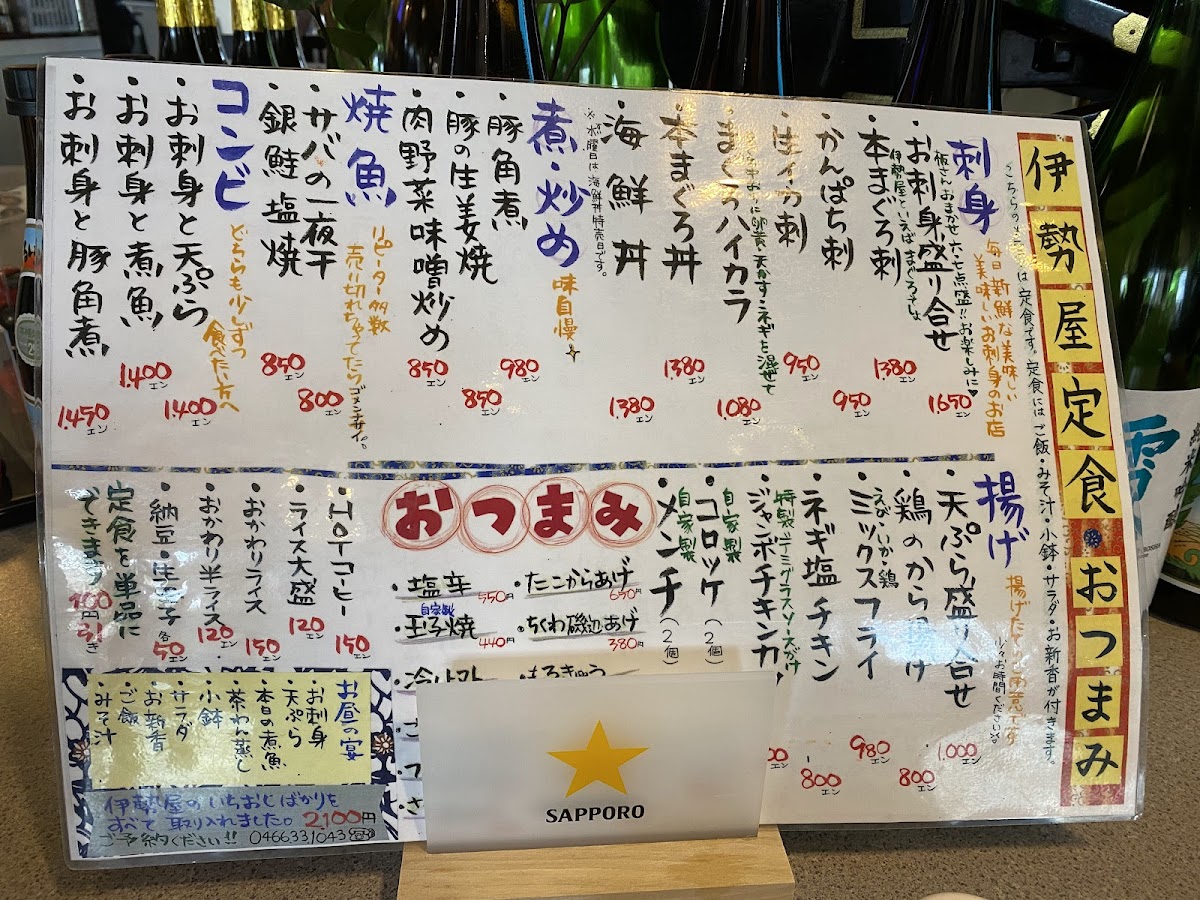 伊勢屋定食・おつまみ
は定食です。定食にはご飯・みそ汁・小鉢・サラダ・お新香が付きます。
刺身
毎日新鮮な美味しい
美味しいお刺身のお店
・お刺身盛り合せ
板さんおまかせ六〜七点盛!!お楽しみに♥
1.650エン
・本まぐろ刺
伊勢屋といえばまぐろでしょ
1.380エン
・かんぱち刺
950エン
・生イカ刺
950エン
・まぐろハイカラ
卵黄・天かす・ネギを混ぜて
1.080エン
・本まぐろ丼
1.380エン
・海鮮丼
1.380エン
※水曜日は海鮮丼特売日です。
煮・炒め
味自慢
・豚角煮
980エン
・豚の生姜焼
850エン
・肉野菜味噌炒め
850エン
焼魚
リピーター多数
売り切れちゃってたらゴメンナサイ。
・サバの一夜干
800エン
・銀鮭塩焼
850エン
コンビ
どちらも少しずつ
食べたい方へ
・お刺身と天ぷら
1.400エン
・お刺身と煮魚
1.400エン
・お刺身と豚角煮
1.450エン
揚げ
少々お時間ください
・天ぷら盛り合せ
1.000エン
・鶏のから揚げ
800エン
・ミックスフライ
えび・いか・鶏
980エン
・ネギ塩チキン
800エン
・ジャンボチキンカ
特製デミグラスソースがけ
・コロッケ(2個)
自家製
・メンチ(2個)
自家製
おつまみ
・塩辛 550円
・たこからあげ 650円
・自家製玉子焼 440円
・ちくわ磯辺あげ 380円
・冷トマト
・もろきゅう
・HOTコーヒー
150エン
・ライス大盛
120エン
・おかわりライス
150エン
・おかわり半ライス
120エン
・納豆・生玉子
各50エン
定食を単品に
できます 100円引き
お昼の宴
・お刺身
・天ぷら
・本日の煮魚
・茶わん蒸し
・小鉢
・サラダ
・お新香
・ご飯
・みそ汁
伊勢屋のいちおしばかりを
すべて取り入れました。2,100円
ご予約ください!! 0466331043
SAPPORO